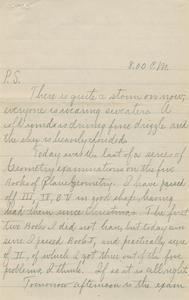 8.00 P.M.
P.S.
There is quite a storm on now,
everyone is wearing sweaters. A
wind is driving fine drizzle and
the sky is heavily clouded.
Today was the last of a series of
Geometry examinations on the five
Books of Plane Geometry. I have passed
off III, IV, & V in good shape, having
had them since Christmas. The first
two Books I did not have, but today am
sure I passed Book I, and practically sure
of II, of which I got three out of the five
problems, I think. If so it is all right.
Tomorrow afternoon is the exam